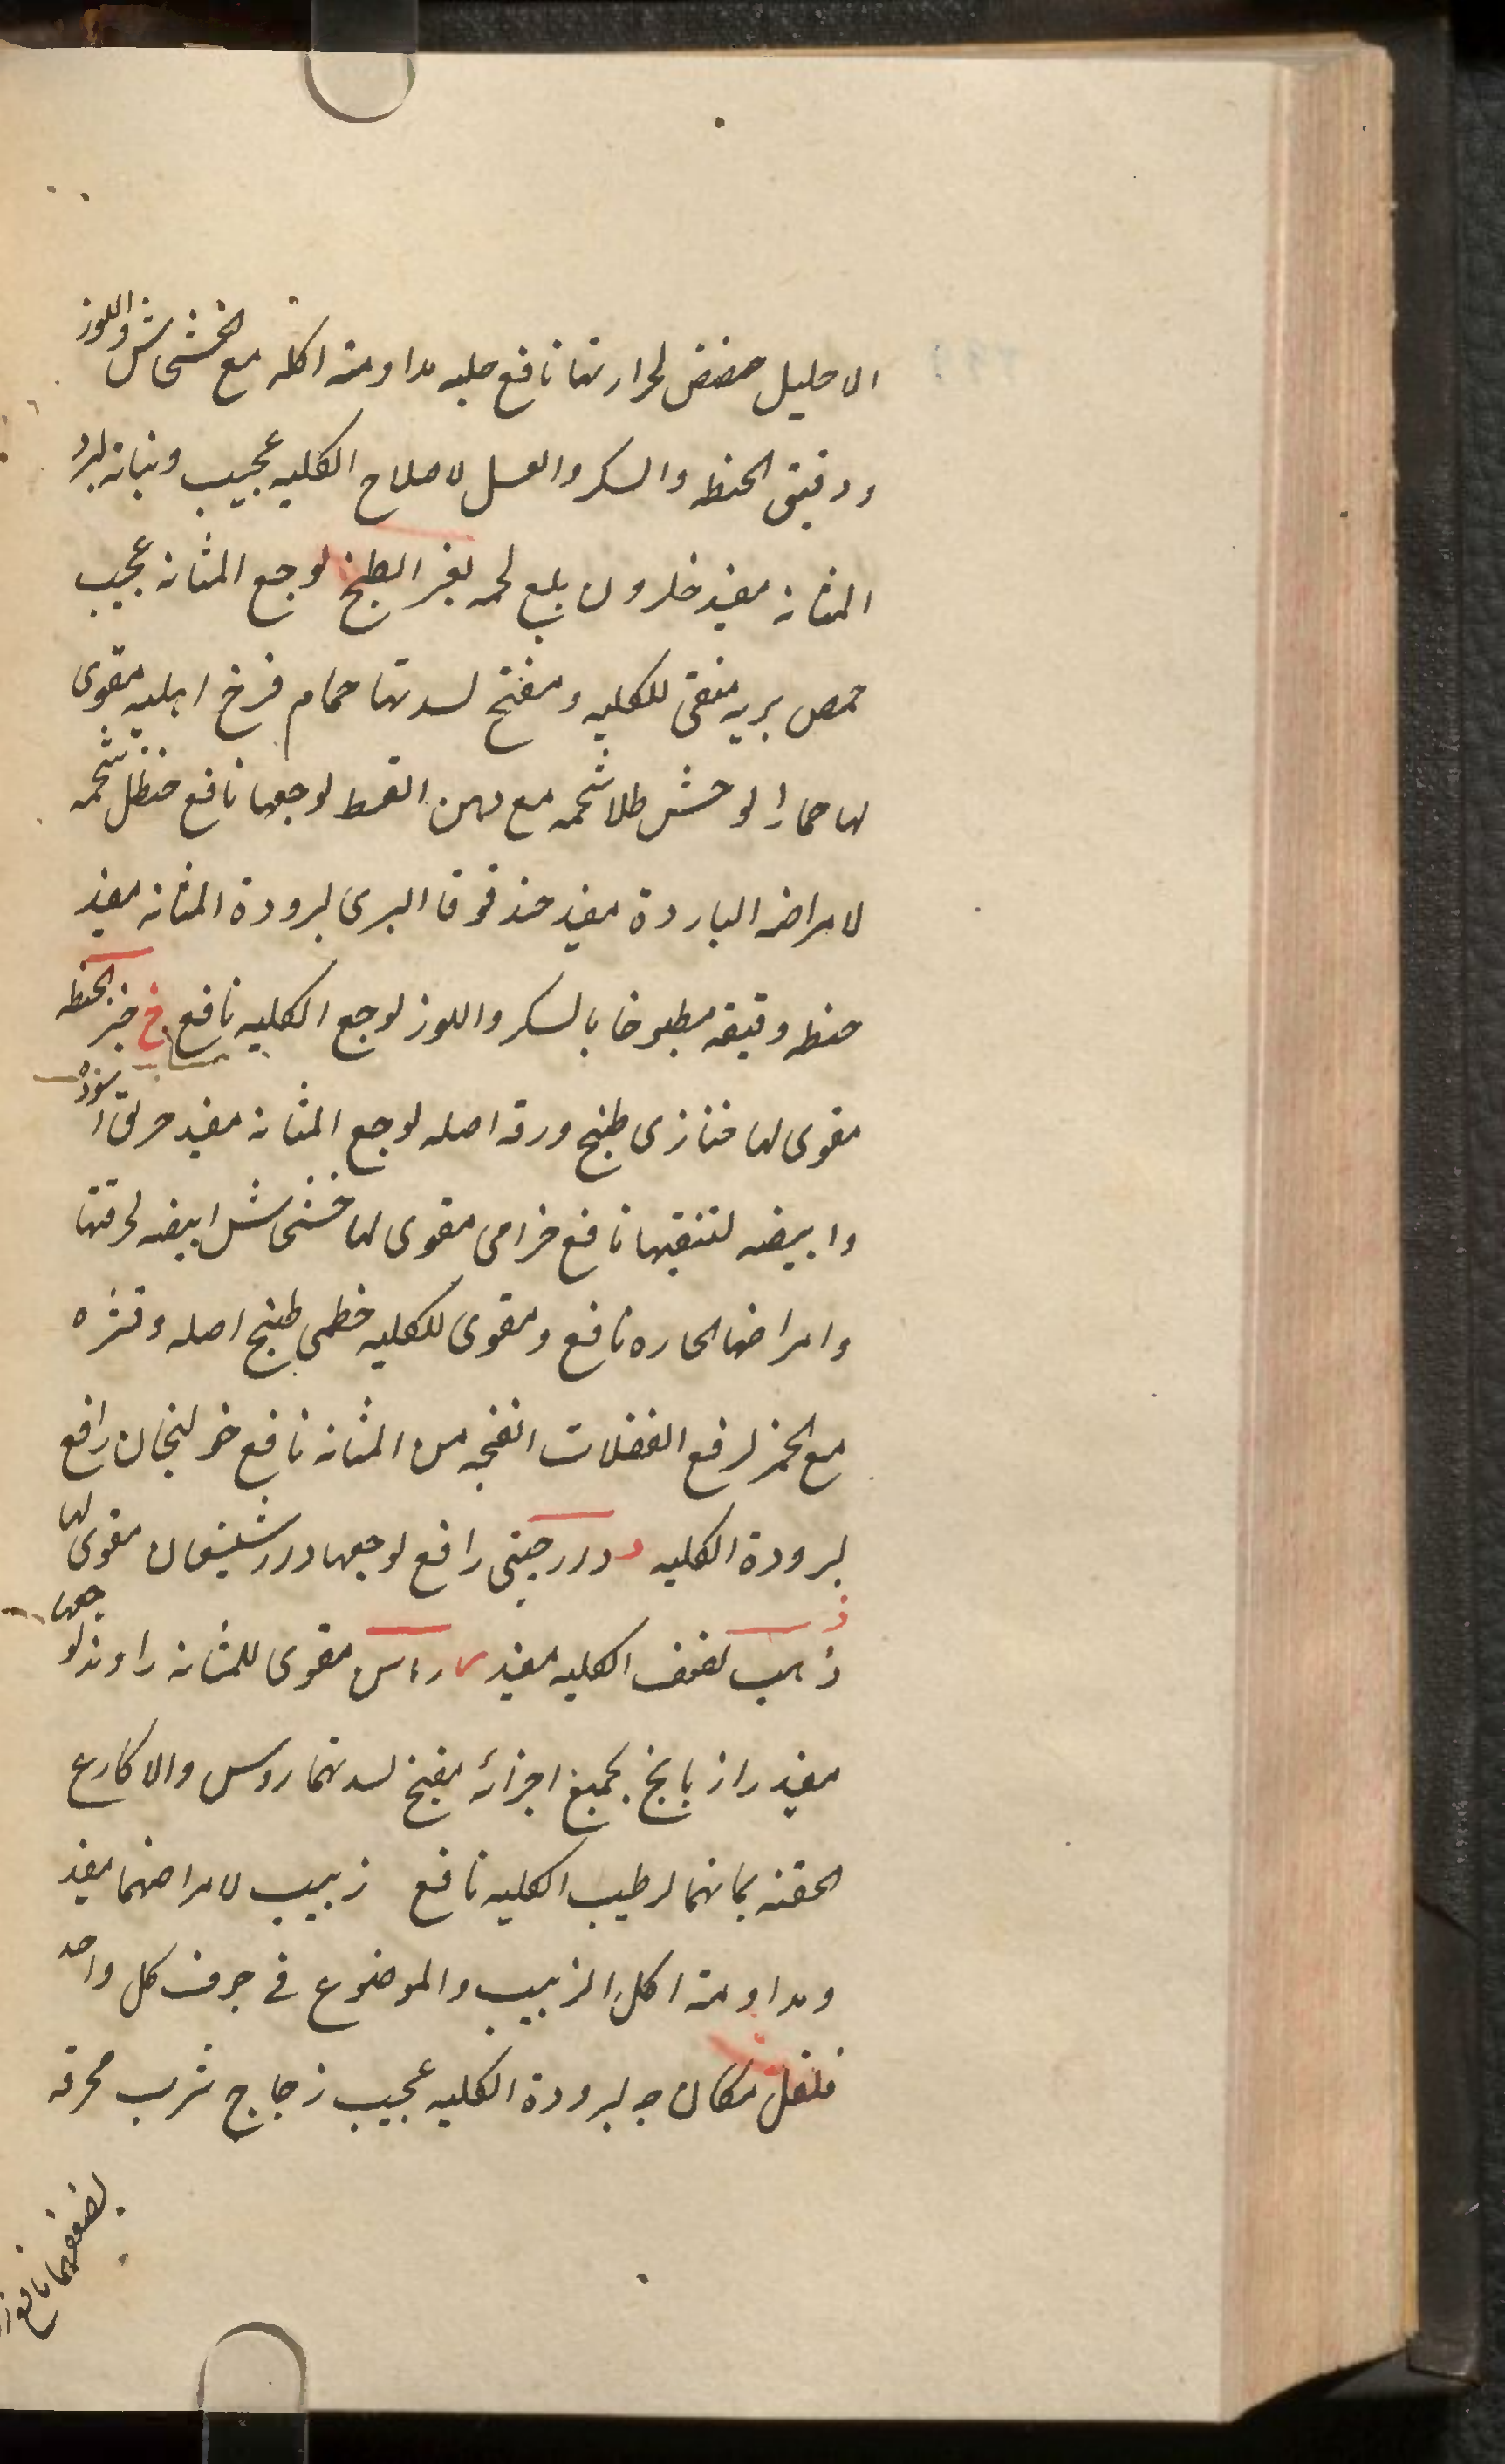 الاحليل حضض لحرارتها نافع حلبه مداومة اكله مع الخشخاش واللوز
ودقيق الحنطه والسكر والعسل لاصلاح الكليه عجيب ونباته لبرد
المثانه مفيد حلزون بلع لحمه بغير الطبخ لوجع المثانه عجيب
حمص بريه منقى للكليه ومفتح لسدتها حمام فرخ اهليه مقوى
لها حمار الوحش طلا شحمه مع دهن القسط لوجعها نافع حنظل شحمه
لامراضه الباردة مفيد حندقوقا البرى لبرودة المثانه مفيد
حنطه دقيقه مطبوخا بالسكر واللوز لوجع الكليه نافع خ خبز الحنطه
مقوى لها خبازى طبخ ورقه اصله لوجع المثانه مفيد خربق اسوده
وابيضه لتنقيها نافع خزامى مقوى لها خشخاش ابيضه لحرقتها
وامراضها الحاره نافع ومقوى للكليه خطمى طبخ اصله وقشره
مع الخمر لرفع الفضلات الفجه من المثانه نافع خولنجان رافع
لبرودة الكليه د دارچينى رافع لوجعها دارشيشعان مقوى لها
ذ
ذهب لضعف الكليه مفيد ر راس مقوى للمثانه راوند لوجعها
مفيد رازيانج بجميع اجزائه مفتح لسدتهما روس والاكارع
الحقنه بمائهما لرطيب الكليه نافع زبيب لامراضهما مفيد
ومداومة اكل الزبيب والموضوع فى جوف كل واحد
فلفل مكان حبه لبرودة الكليه عجيب زجاج شرب محرقه
لضعفهما نافع